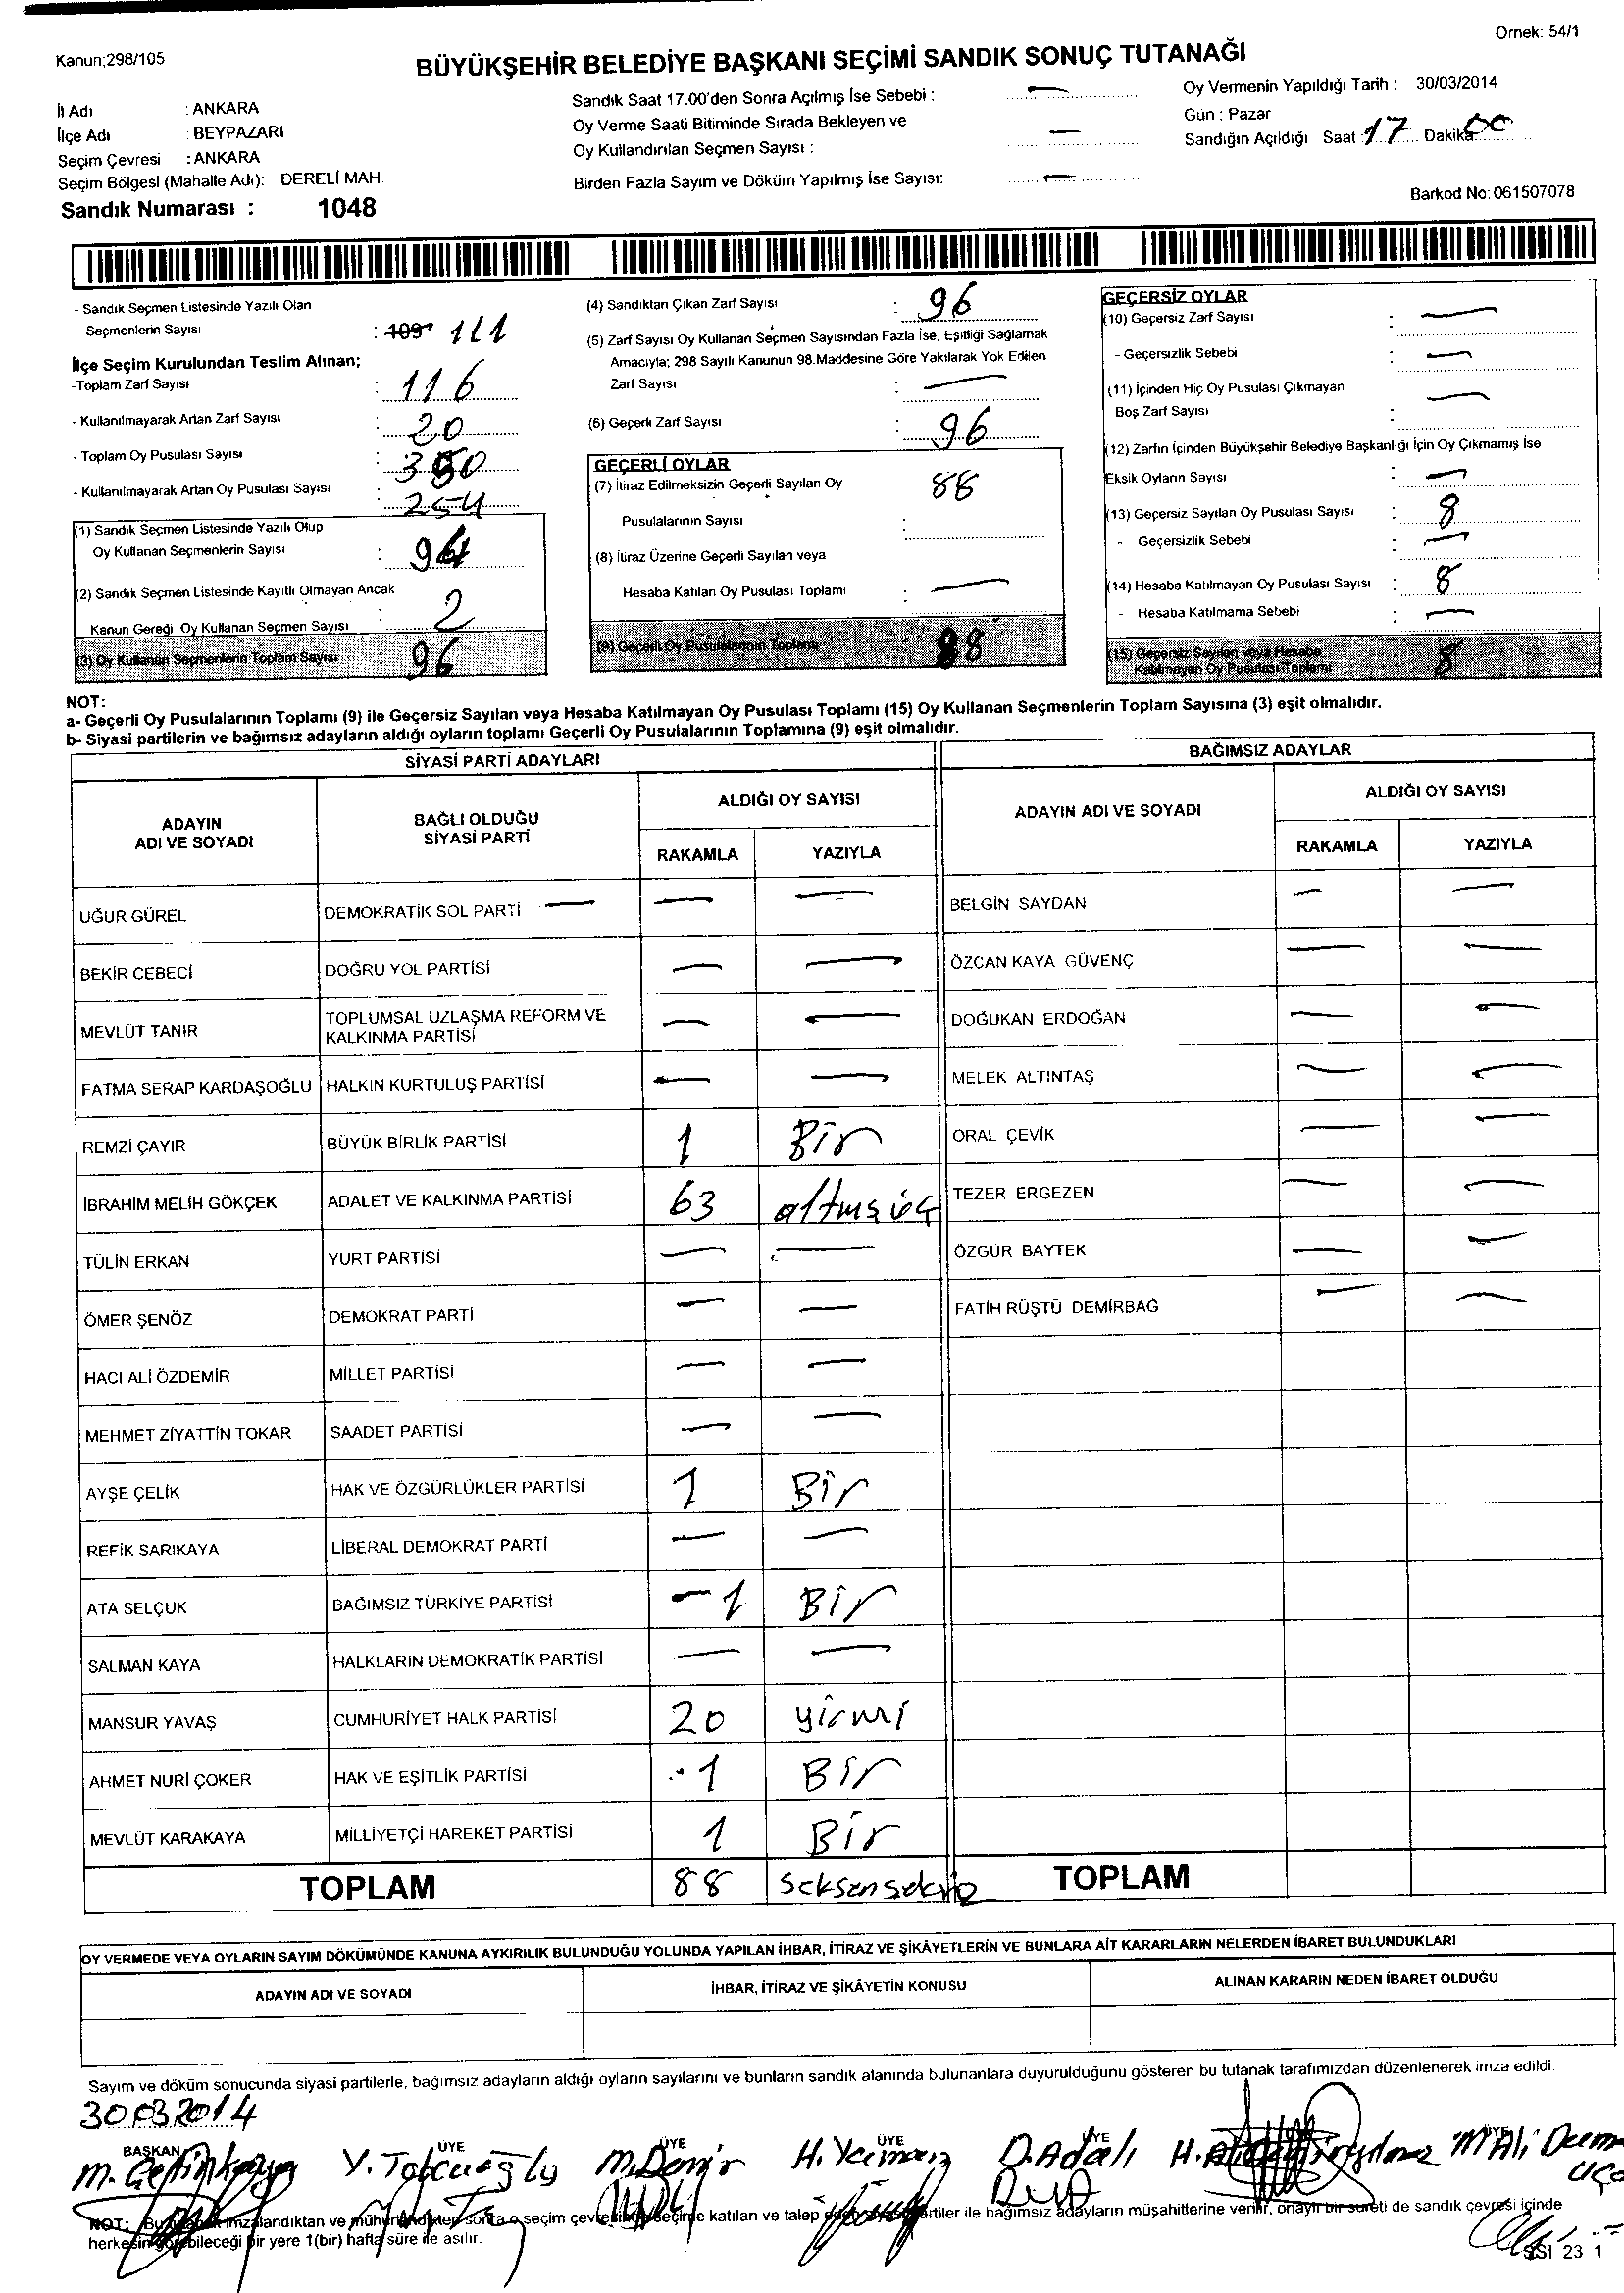 Örnek: 54/1
Kanun;298/105
BÜYÜKŞEHİR BELEDİYE BAŞKANI SEÇİMİ SANDIK SONUÇ TUTANAĞI
İl Adı : ANKARA
İlçe Adı : BEYPAZARI
Seçim Çevresi : ANKARA
Seçim Bölgesi (Mahalle Adı): DERELİ MAH.
Sandık Numarası : 1048
Sandık Saat 17.00'den Sonra Açılmış İse Sebebi : —
Oy Verme Saati Bitiminde Sırada Bekleyen ve
Oy Kullandırılan Seçmen Sayısı : —
Birden Fazla Sayım ve Döküm Yapılmış İse Sayısı: —
Oy Vermenin Yapıldığı Tarih : 30/03/2014
Gün : Pazar
Sandığın Açıldığı Saat : 17 Dakika 00
Barkod No: 061507078
- Sandık Seçmen Listesinde Yazılı Olan
Seçmenlerin Sayısı : 109 111
İlçe Seçim Kurulundan Teslim Alınan;
-Toplam Zarf Sayısı : 116
- Kullanılmayarak Artan Zarf Sayısı : 20
- Toplam Oy Pusulası Sayısı : 350
- Kullanılmayarak Artan Oy Pusulası Sayısı : 254
(1) Sandık Seçmen Listesinde Yazılı Olup
Oy Kullanan Seçmenlerin Sayısı : 94
(2) Sandık Seçmen Listesinde Kayıtlı Olmayan Ancak
Kanun Gereği Oy Kullanan Seçmen Sayısı : 2
(3) Oy Kullanan Seçmenlerin Toplam Sayısı : 96
(4) Sandıktan Çıkan Zarf Sayısı : 96
(5) Zarf Sayısı Oy Kullanan Seçmen Sayısından Fazla İse, Eşitliği Sağlamak
Amacıyla; 298 Sayılı Kanunun 98.Maddesine Göre Yakılarak Yok Edilen
Zarf Sayısı : —
(6) Geçerli Zarf Sayısı : 96
GEÇERLİ OYLAR
(7) İtiraz Edilmeksizin Geçerli Sayılan Oy 88
Pusulalarının Sayısı :
(8) İtiraz Üzerine Geçerli Sayılan veya
Hesaba Katılan Oy Pusulası Toplamı : —
(9) Geçerli Oy Pusulalarının Toplamı : 88
GEÇERSİZ OYLAR
(10) Geçersiz Zarf Sayısı : —
- Geçersizlik Sebebi : —
(11) İçinden Hiç Oy Pusulası Çıkmayan
Boş Zarf Sayısı : —
(12) Zarfın İçinden Büyükşehir Belediye Başkanlığı İçin Oy Çıkmamış İse
Eksik Oyların Sayısı : —
(13) Geçersiz Sayılan Oy Pusulası Sayısı : 8
- Geçersizlik Sebebi : —
(14) Hesaba Katılmayan Oy Pusulası Sayısı : 8
- Hesaba Katılmama Sebebi : —
(15) Geçersiz Sayılan veya Hesaba
Katılmayan Oy Pusulası Toplamı : 8
NOT:
a- Geçerli Oy Pusulalarının Toplamı (9) ile Geçersiz Sayılan veya Hesaba Katılmayan Oy Pusulası Toplamı (15) Oy Kullanan Seçmenlerin Toplam Sayısına (3) eşit olmalıdır.
b- Siyasi partilerin ve bağımsız adayların aldığı oyların toplamı Geçerli Oy Pusulalarının Toplamına (9) eşit olmalıdır.
SİYASİ PARTİ ADAYLARI
ADAYIN ADI VE SOYADI BAĞLI OLDUĞU SİYASİ PARTİ ALDIĞI OY SAYISI
RAKAMLA YAZIYLA
UĞUR GÜREL DEMOKRATİK SOL PARTİ — — —
BEKİR CEBECİ DOĞRU YOL PARTİSİ — —
MEVLÜT TANIR TOPLUMSAL UZLAŞMA REFORM VE KALKINMA PARTİSİ — —
FATMA SERAP KARDAŞOĞLU HALKIN KURTULUŞ PARTİSİ — —
REMZİ ÇAYIR BÜYÜK BİRLİK PARTİSİ 1 Bir
İBRAHİM MELİH GÖKÇEK ADALET VE KALKINMA PARTİSİ 63 altmış üç
TÜLİN ERKAN YURT PARTİSİ — —
ÖMER ŞENÖZ DEMOKRAT PARTİ — —
HACI ALİ ÖZDEMİR MİLLET PARTİSİ — —
MEHMET ZİYATTİN TOKAR SAADET PARTİSİ — —
AYŞE ÇELİK HAK VE ÖZGÜRLÜKLER PARTİSİ 1 Bir
REFİK SARIKAYA LİBERAL DEMOKRAT PARTİ — —
ATA SELÇUK BAĞIMSIZ TÜRKİYE PARTİSİ — 1 Bir
SALMAN KAYA HALKLARIN DEMOKRATİK PARTİSİ — —
MANSUR YAVAŞ CUMHURİYET HALK PARTİSİ 20 yirmi
AHMET NURİ ÇOKER HAK VE EŞİTLİK PARTİSİ 1 Bir
MEVLÜT KARAKAYA MİLLİYETÇİ HAREKET PARTİSİ 1 Bir
TOPLAM 88 seksensekiz
BAĞIMSIZ ADAYLAR
ADAYIN ADI VE SOYADI ALDIĞI OY SAYISI
RAKAMLA YAZIYLA
BELGİN SAYDAN — —
ÖZCAN KAYA GÜVENÇ — —
DOĞUKAN ERDOĞAN — —
MELEK ALTINTAŞ — —
ORAL ÇEVİK — —
TEZER ERGEZEN — —
ÖZGÜR BAYTEK — —
FATİH RÜŞTÜ DEMİRBAĞ — —
TOPLAM
OY VERMEDE VEYA OYLARIN SAYIM DÖKÜMÜNDE KANUNA AYKIRILIK BULUNDUĞU YOLUNDA YAPILAN İHBAR, İTİRAZ VE ŞİKÂYETLERİN VE BUNLARA AİT KARARLARIN NELERDEN İBARET BULUNDUKLARI
ADAYIN ADI VE SOYADI İHBAR, İTİRAZ VE ŞİKÂYETİN KONUSU ALINAN KARARIN NEDEN İBARET OLDUĞU
Sayım ve döküm sonucunda siyasi partilerle, bağımsız adayların aldığı oyların sayılarını ve bunların sandık alanında bulunanlara duyurulduğunu gösteren bu tutanak tarafımızdan düzenlenerek imza edildi.
30.03.2014
BAŞKAN ÜYE ÜYE ÜYE ÜYE ÜYE
M. Çetinkaya Y. Topcuoğlu M. Demir H. Yaman D. Adalı H. M Ali
NOT: Bu imzalandıktan ve mühürlendikten sonra o seçim çevresinde seçime katılan ve talep eden siyasi partiler ile bağımsız adayların müşahitlerine verilir, onaylı bir sureti de sandık çevresi içinde
herkesin görebileceği bir yere 1(bir) hafta süre ile asılır.
SSI 23 1